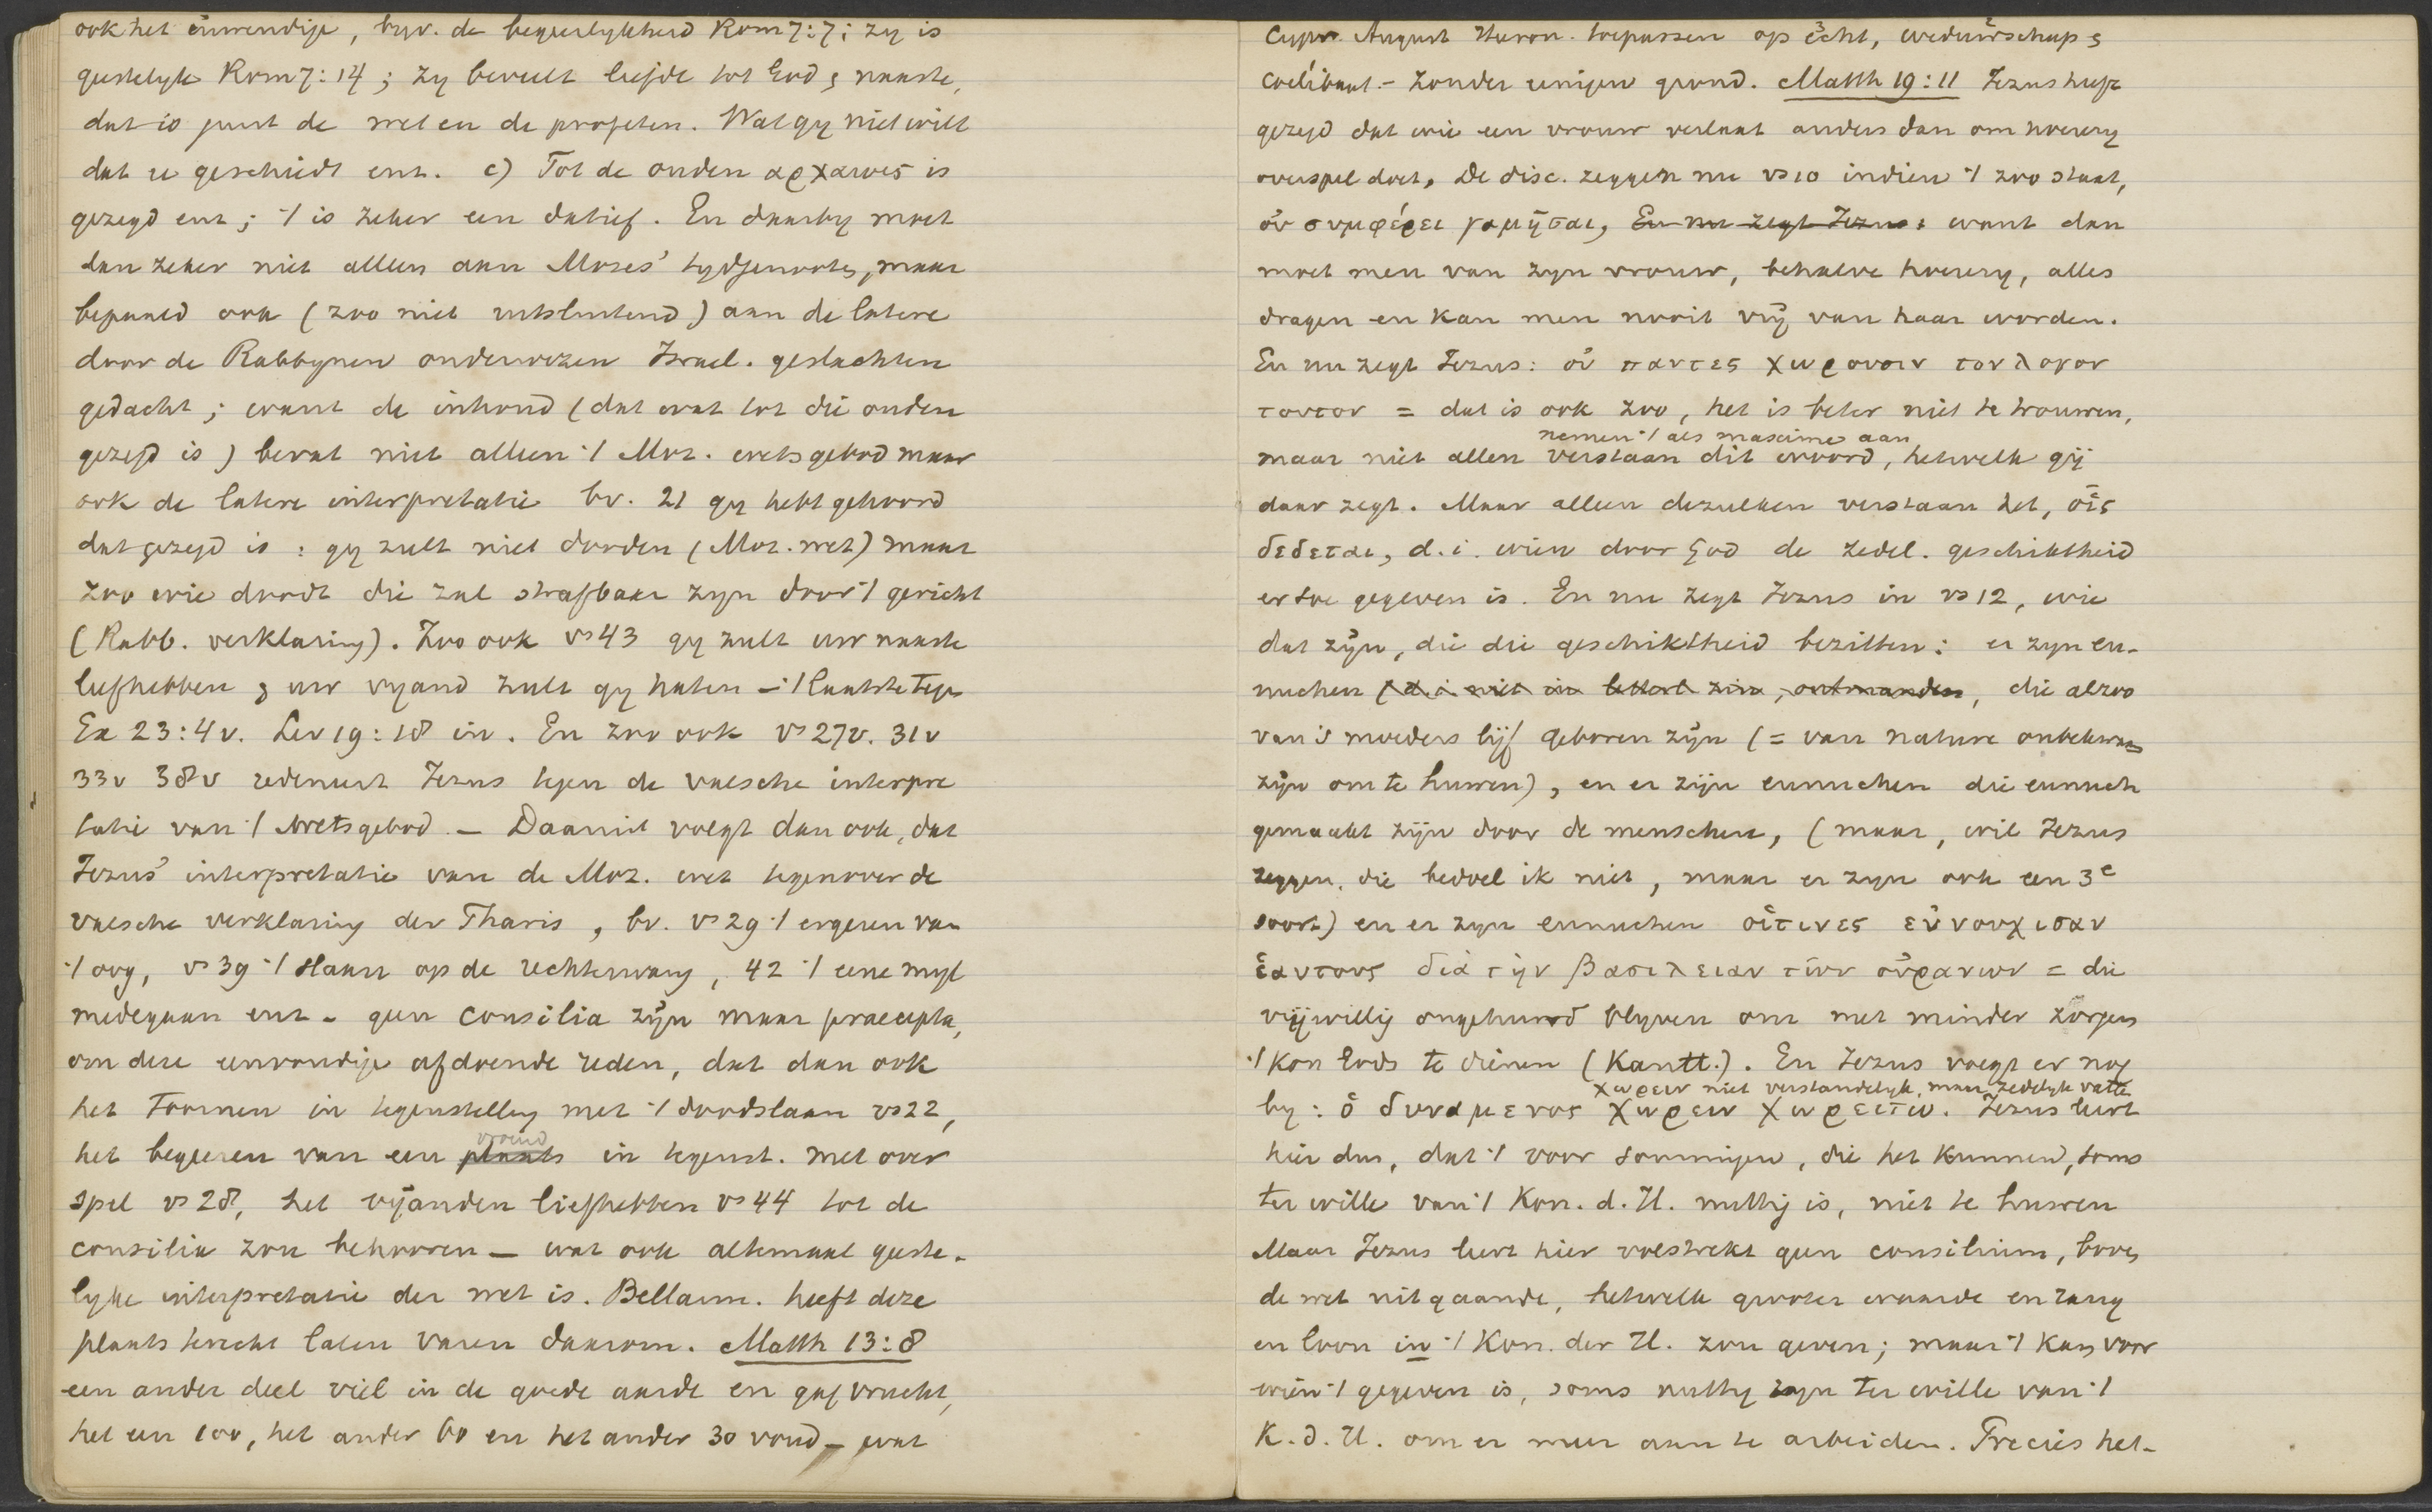 ook het inwendige, byv. de begeerlykheid Rom 7:7; zy is
geestelyk Rom 7:14; zy beveelt liefde tot God & naaste,
dat is juist de wet en de profeten. Wat gy niet wilt
dat u geschiedt enz. c) Tot de ouden αρχαιοις is
gezegd enz; 't is zeker een datief. En daarby moet
dan zeker niet alleen aan Mozes' tydgenooten, maar
bepaald ook (zoo niet uitsluitend) aan de latere
door de Rabbynen onderwezen Israel. geslachten
gedacht; want de inhoud (dat wat tot die ouden
gezegd is) bevat niet alleen 't Moz. wetsgebod maar
ook de latere interpretatie bv. 21 gy hebt gehoord
dat gezegd is: gy zult niet dooden (Moz. wet) maar
zoo wie doodt die zal strafbaar zyn door 't gericht
(Rabb. verklaring). Zoo ook vs 43 gy zult uw naaste
liefhebben & uw vyand zult gy haten - 't laatste tegen
Ex 23:4v. Lev 19:18 in. En zoo ook vs 27v. 31v
33v 38v redeneert Jezus tegen de valsche interpre
tatie van 't wetsgebod. - Daaruit volgt dan ook, dat
Jezus' interpretatie van de Moz. wet tegenover de
valsche verklaring der Pharis, bv. vs 29 't ergeren van
't oog, vs 39 't slaan op de rechterwang, 42 't eene myl
medegaan enz - geen consilia zyn maar praecepta,
om deze eenvoudige afdoende reden, dat dan ook
het toornen in tegenstelling met 't doodslaan vs 22,
het begeeren van een plaats vrouw in tegenst. met over
spel vs 28, het vyanden liefhebben vs 44 tot de
consilia zou behooren - wat ook altemaal geeste-
lyke interpretatie der wet is. Bellarm. heeft deze
plaats terecht laten varen daarom. Matth 13:8
een ander deel viel in de goede aarde en gaf vrucht,
het een 100, het ander 60 en het ander 30 voud - wat
Cypr. August Hieron. toepassen op echt, weduwschap &
coelibaat. - Zonder eenigen grond. Matth 19:11 Jezus heeft
gezegd dat wie een vrouw verlaat anders dan om hoerery
overspel doet, De disc. zeggen nu vs 10 indien 't zoo staat,
οὐ συμφέρει γαμῆσαι, En nu zegt Jezus: want dan
moet men van zyn vrouw, behalve hoerery, alles
dragen en kan men nooit vrij van haar worden.
En nu zegt Jezus: οὐ παντες χωρουσιν τον λογον
τουτον = dat is ook zoo, het is beter niet te trouwen,
nemen 't als maxime aan
maar niet allen verstaan dit woord, hetwelk gij
daar zegt. Maar alleen dezulken verstaan het, οἷς
δεδεται, d.i. wien door God de zedel. geschiktheid
ertoe gegeven is. En nu zegt Jezus in vs 12, wie
dat zijn, die die geschiktheid bezitten: er zyn eu-
nuchen (d.i. niet in letterl. zin, ontmanden, die alzoo
van 's moeders lijf geboren zijn (= van nature onbekwaam
zijn om te huwen), en er zijn eunuchen die eunuch
gemaakt zijn door de menschen, (maar, wil Jezus
zeggen, die bedoel ik niet, maar er zyn ook een 3e
soort) en er zyn eunuchen οἵτινες εὐνουχισαν
ἑαυτους διὰ τὴν βασιλειαν τῶν οὐρανων = die
vrijwillig ongehuwd blyven om met minder zorgen
't Kon Gods te dienen (Kantt.). En Jezus voegt er nog
χωρειν niet verstandelyk, maar zedelyk vatte
by: ὁ δυναμενος χωρειν χωρειτω. Jezus leert
hier dus, dat 't voor sommigen, die het kunnen, soms
ter wille van 't Kon. d. H. nuttig is, niet te huwen
Maar Jezus leert hier volstrekt geen consilium, boven
de wet uitgaande, hetwelk grooter waarde en rang
en loon in 't Kon. der H. zou geven; maar 't kan voor
wien 't gegeven is, soms nuttig zyn ter wille van 't
K. d. H. om er meer aan te arbeiden. Precies het-